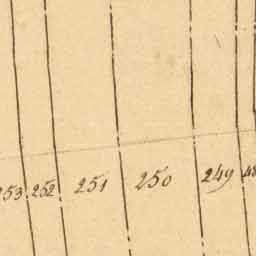 253 252 251 250 249 48